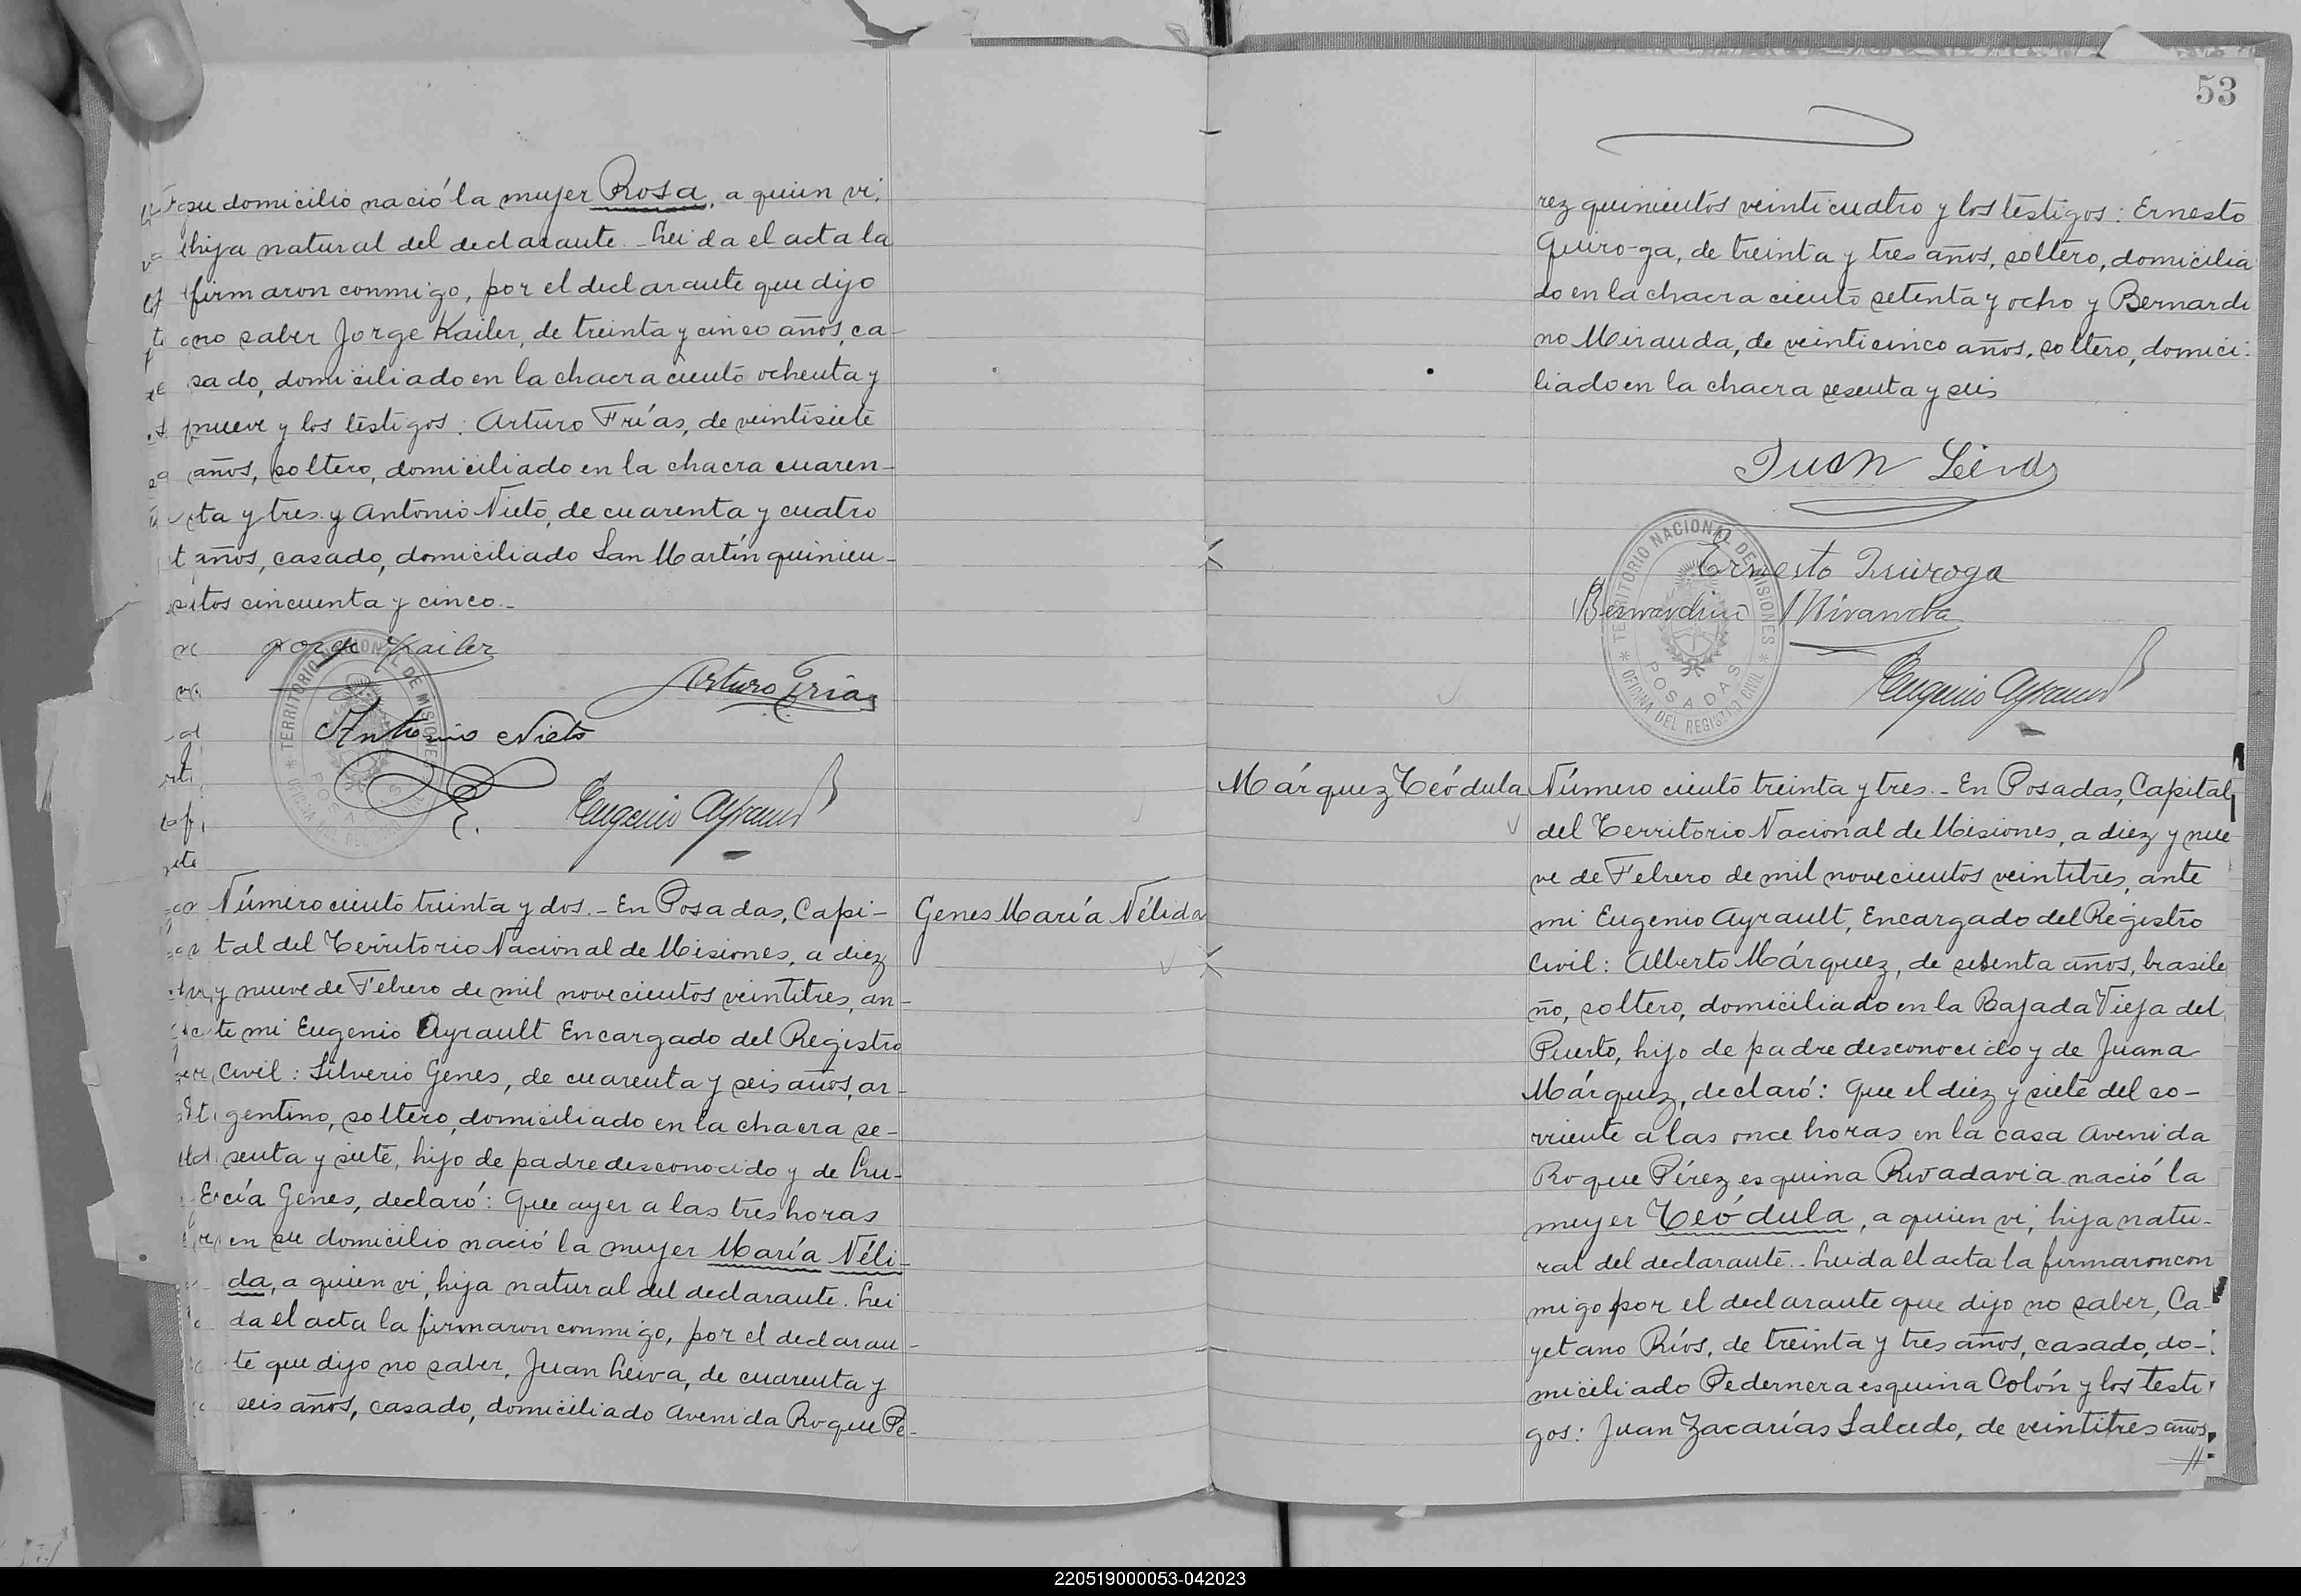 su domicilio nació la mujer Rosa, a quien vi,
hija natural del declarante. Leida el acta la
firmaron conmigo, por el declarante que dijo
no saber Jorge Kailer, de treinta y cinco años, ca-
sado, domiciliado en la chacra ciento ochenta y
nueve y los testigos: Arturo Frías, de veintisiete
años, soltero, domiciliado en la chacra cuaren-
ta y tres y Antonio Nieto, de cuarenta y cuatro
años, casado, domiciliado San Martín quinien-
tos cincuenta y cinco.-
Jorge Kailer
Arturo Frias
Antonio Nieto
Eugenio Ayrault
TERRITORIO NACIONAL DE MISIONES
OFICINA DEL REGISTRO CIVIL
POSADAS
Genes María Nélida
Número ciento treinta y dos.- En Posadas, Capi-
tal del Territorio Nacional de Misiones, a diez
y nueve de Febrero de mil novecientos veintitres, an-
te mi Eugenio Ayrault Encargado del Registro
Civil: Silverio Genes, de cuarenta y seis años, ar-
gentino, soltero, domiciliado en la chacra se-
senta y siete, hijo de padre desconocido y de Lu-
cía Genes, declaró: Que ayer a las tres horas
en su domicilio nació la mujer María Néli-
da, a quien vi, hija natural del declarante. Lei
da el acta la firmaron conmigo, por el declaran-
te que dijo no saber, Juan Leiva, de cuarenta y
seis años, casado, domiciliado Avenida Roque Pé-
53
rez quinientos veinticuatro y los testigos: Ernesto
Quiroga, de treinta y tres años, soltero, domicilia
do en la chacra ciento setenta y ocho y Bernardi
no Miranda, de veinticinco años, soltero, domici-
liado en la chacra sesenta y seis
Juan Leiva
Ernesto Quiroga
Bernardino Miranda
Eugenio Ayrault
TERRITORIO NACIONAL DE MISIONES
OFICINA DEL REGISTRO CIVIL
POSADAS
Márquez Teódula
Número ciento treinta y tres.- En Posadas, Capital
del Territorio Nacional de Misiones, a diez y nue
ve de Febrero de mil novecientos veintitres, ante
mi Eugenio Ayrault, Encargado del Registro
Civil: Alberto Márquez, de setenta años, brasile
ño, soltero, domiciliado en la Bajada Vieja del
Puerto, hijo de padre desconocido y de Juana
Márquez, declaró: Que el diez y siete del co-
rriente a las once horas en la casa Avenida
Roque Pérez esquina Rivadavia nació la
mujer Teódula, a quien vi, hija natu-
ral del declarante.- Leida el acta la firmaron con
migo por el declarante que dijo no saber, Ca-
yetano Ríos, de treinta y tres años, casado, do-
miciliado Pedernera esquina Colón y los testi
gos: Juan Zacarías Salcedo, de veintitres años,
//
220519000053-042023